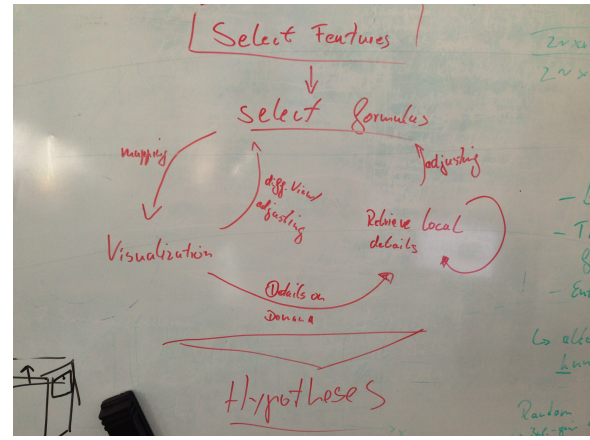 Select Features
Select formulas
mapping
diff. View/
adjusting
adjusting
Visualization
Retrieve local
details
Details on
Hypotheses
Random